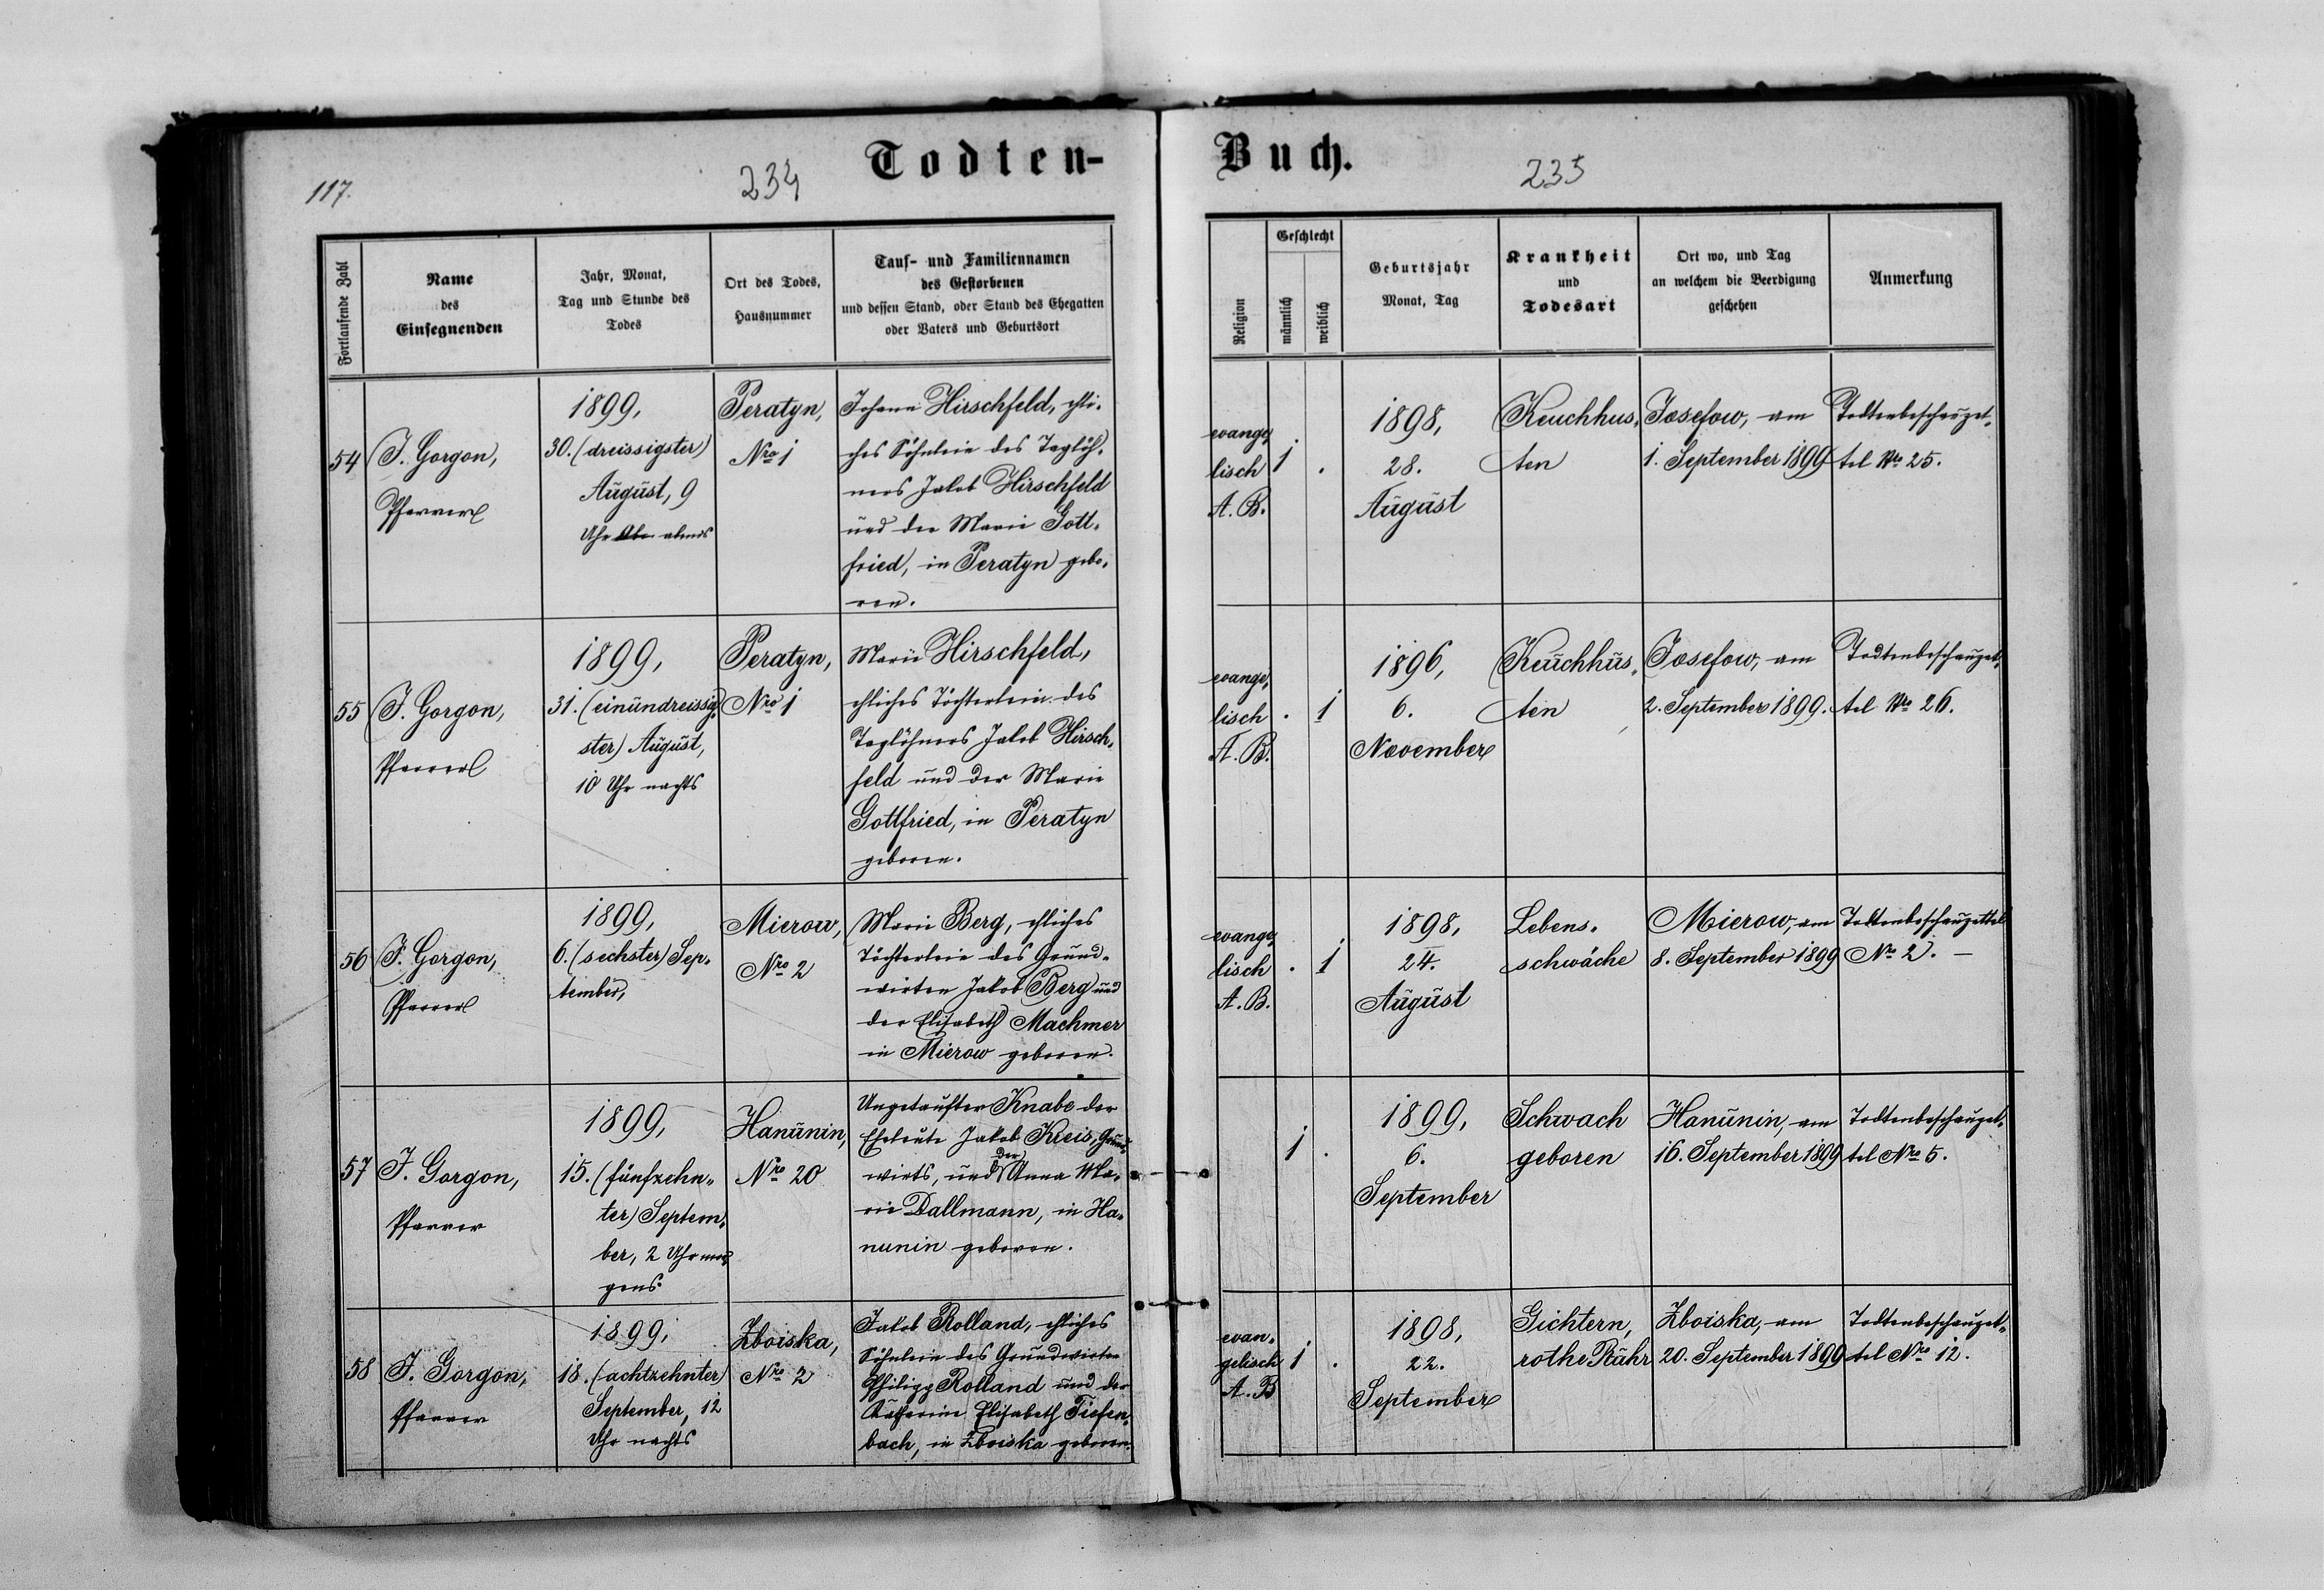 117.
234
Todten-
Buch.
235
Fortlaufende Zahl
Name
des
Einsegnenden
Jahr, Monat,
Tag und Stunde des
Todes
Ort des Todes,
Hausnummer
Tauf- und Familiennamen
des Gestorbenen
und dessen Stand, oder Stand des Ehegatten
oder Vaters und Geburtsort
Religion
Geschlecht
männlich
weiblich
Geburtsjahr
Monat, Tag
Krankheit
und
Todesart
Ort wo, und Tag
an welchem die Beerdigung
geschehen
Anmerkung
54
J. Gorgon,
Pfarrer
1899,
30. (dreissigster)
August, 9
Uhr Abe abends
Peratyn,
Nro 1
Johann Hirschfeld, ehli-
ches Söhnlein des Taglöh-
ners Jakob Hirschfeld
und der Marie Gott-
fried, in Peratyn gebo-
ren.
evange-
lisch
A. B.
1
.
1898,
28.
August
Keuchhus-
ten
Josefow, am
1. September 1899
Todtenbeschauzet-
tel No 25.
55
J. Gorgon,
Pfarrer
1899,
31. (einundreissig-
ster) August,
10 Uhr nachts
Peratyn,
Nro 1
Marie Hirschfeld,
ehliches Töchterlein des
Taglöhners Jakob Hirsch-
feld und der Marie
Gottfried, in Peratyn
geboren.
evange-
lisch
A. B.
.
1
1896,
6.
November
Keuchhus-
ten
Josefow, am
2. September 1899.
Todtenbeschauzet-
tel No 26.
56
J. Gorgon,
Pfarrer
1899,
6. (sechster) Sep-
tember,
Mierow,
Nro 2
Marie Berg, ehliches
Töchterlein des Grund-
wirten Jakob Berg und
der Elisabeth Machmer
in Mierow geboren.
evange-
lisch
A. B.
.
1
1898,
24.
August
Lebens-
schwäche
Mierow, am
8. September 1899
Todtenbeschauzettel
No 2. —
57
J. Gorgon,
Pfarrer
1899,
15. (fünfzehn-
ter) Septem-
ber, 2 Uhr mor-
gens
Hanunin,
Nro 20
Ungetaufter Knabe der
Eheleute Jakob Kreis, Grund-
der
wirts, und Anna Ma-
rie Dallmann, in Ha-
nunin geboren.
1
.
1899,
6.
September
Schwach
geboren
Hanunin, am
16. September 1899
Todtenbeschauzet-
tel Nro 5.
58
J. Gorgon,
Pfarrer
1899,
18. (achtzehnter)
September, 12
Uhr nachts
Zboiska,
Nro 2
Jakob Rolland, ehliches
Söhnlein des Grundwirten
Philipp Rolland und der
Katharine Elisabeth Tiefen-
bach, in Zboiska geboren.
evan-
gelisch
A. B
1
.
1898,
22.
September
Gichtern,
rothe Rühr
Zboiska, am
20. September 1899
Todtenbeschauzet-
tel Nro 12.